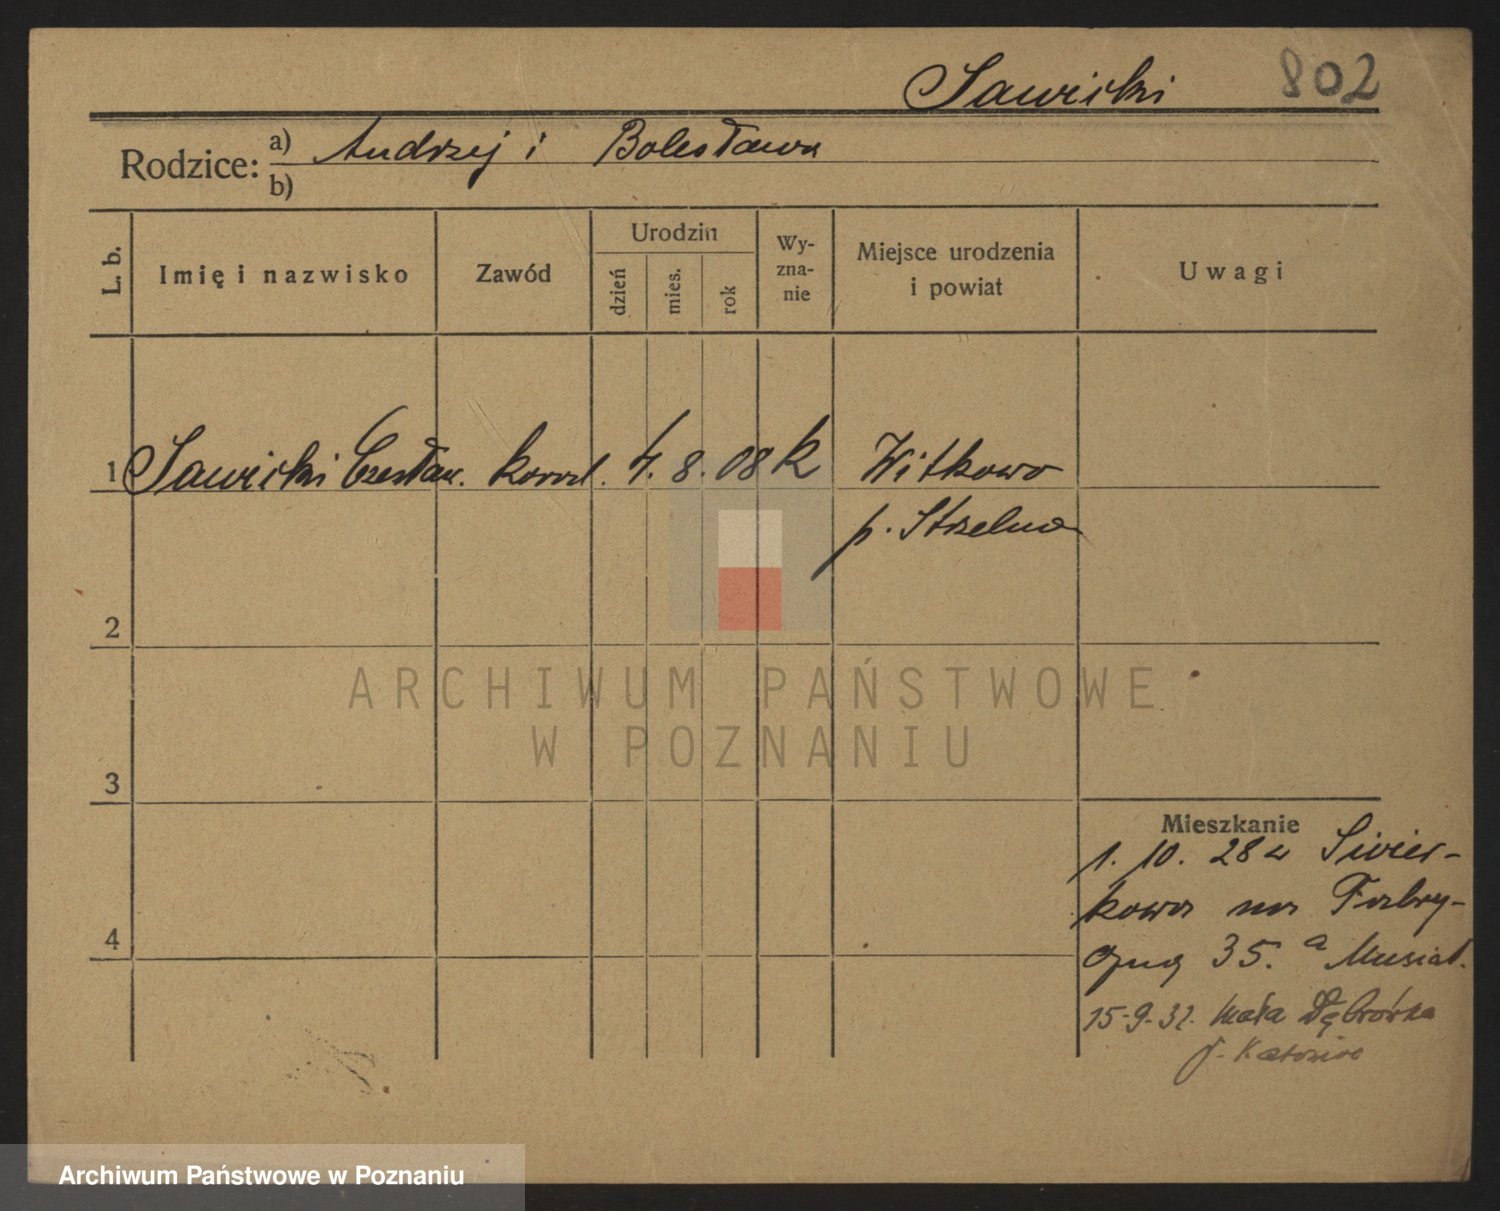 Sawicki 802
Rodzice: a) Andrzej i Bolesława
b)
L. b.
Imię i nazwisko
Zawód
Urodzin
dzień
mies.
rok
Wy-
zna-
nie
Miejsce urodzenia
i powiat
Uwagi
1 Sawicki Czesław. 4. 8. 08 k Witkowo
p. Strzelno
2
3
4
Mieszkanie
1. 10. 28 z Siwier-
kowa na Fabry-
czną 35. a Musiał.
15-9-32. Mała Dąbrówka
p. Katowice
ARCHIWUM PAŃSTWOWE
W POZNANIU
Archiwum Państwowe w Poznaniu